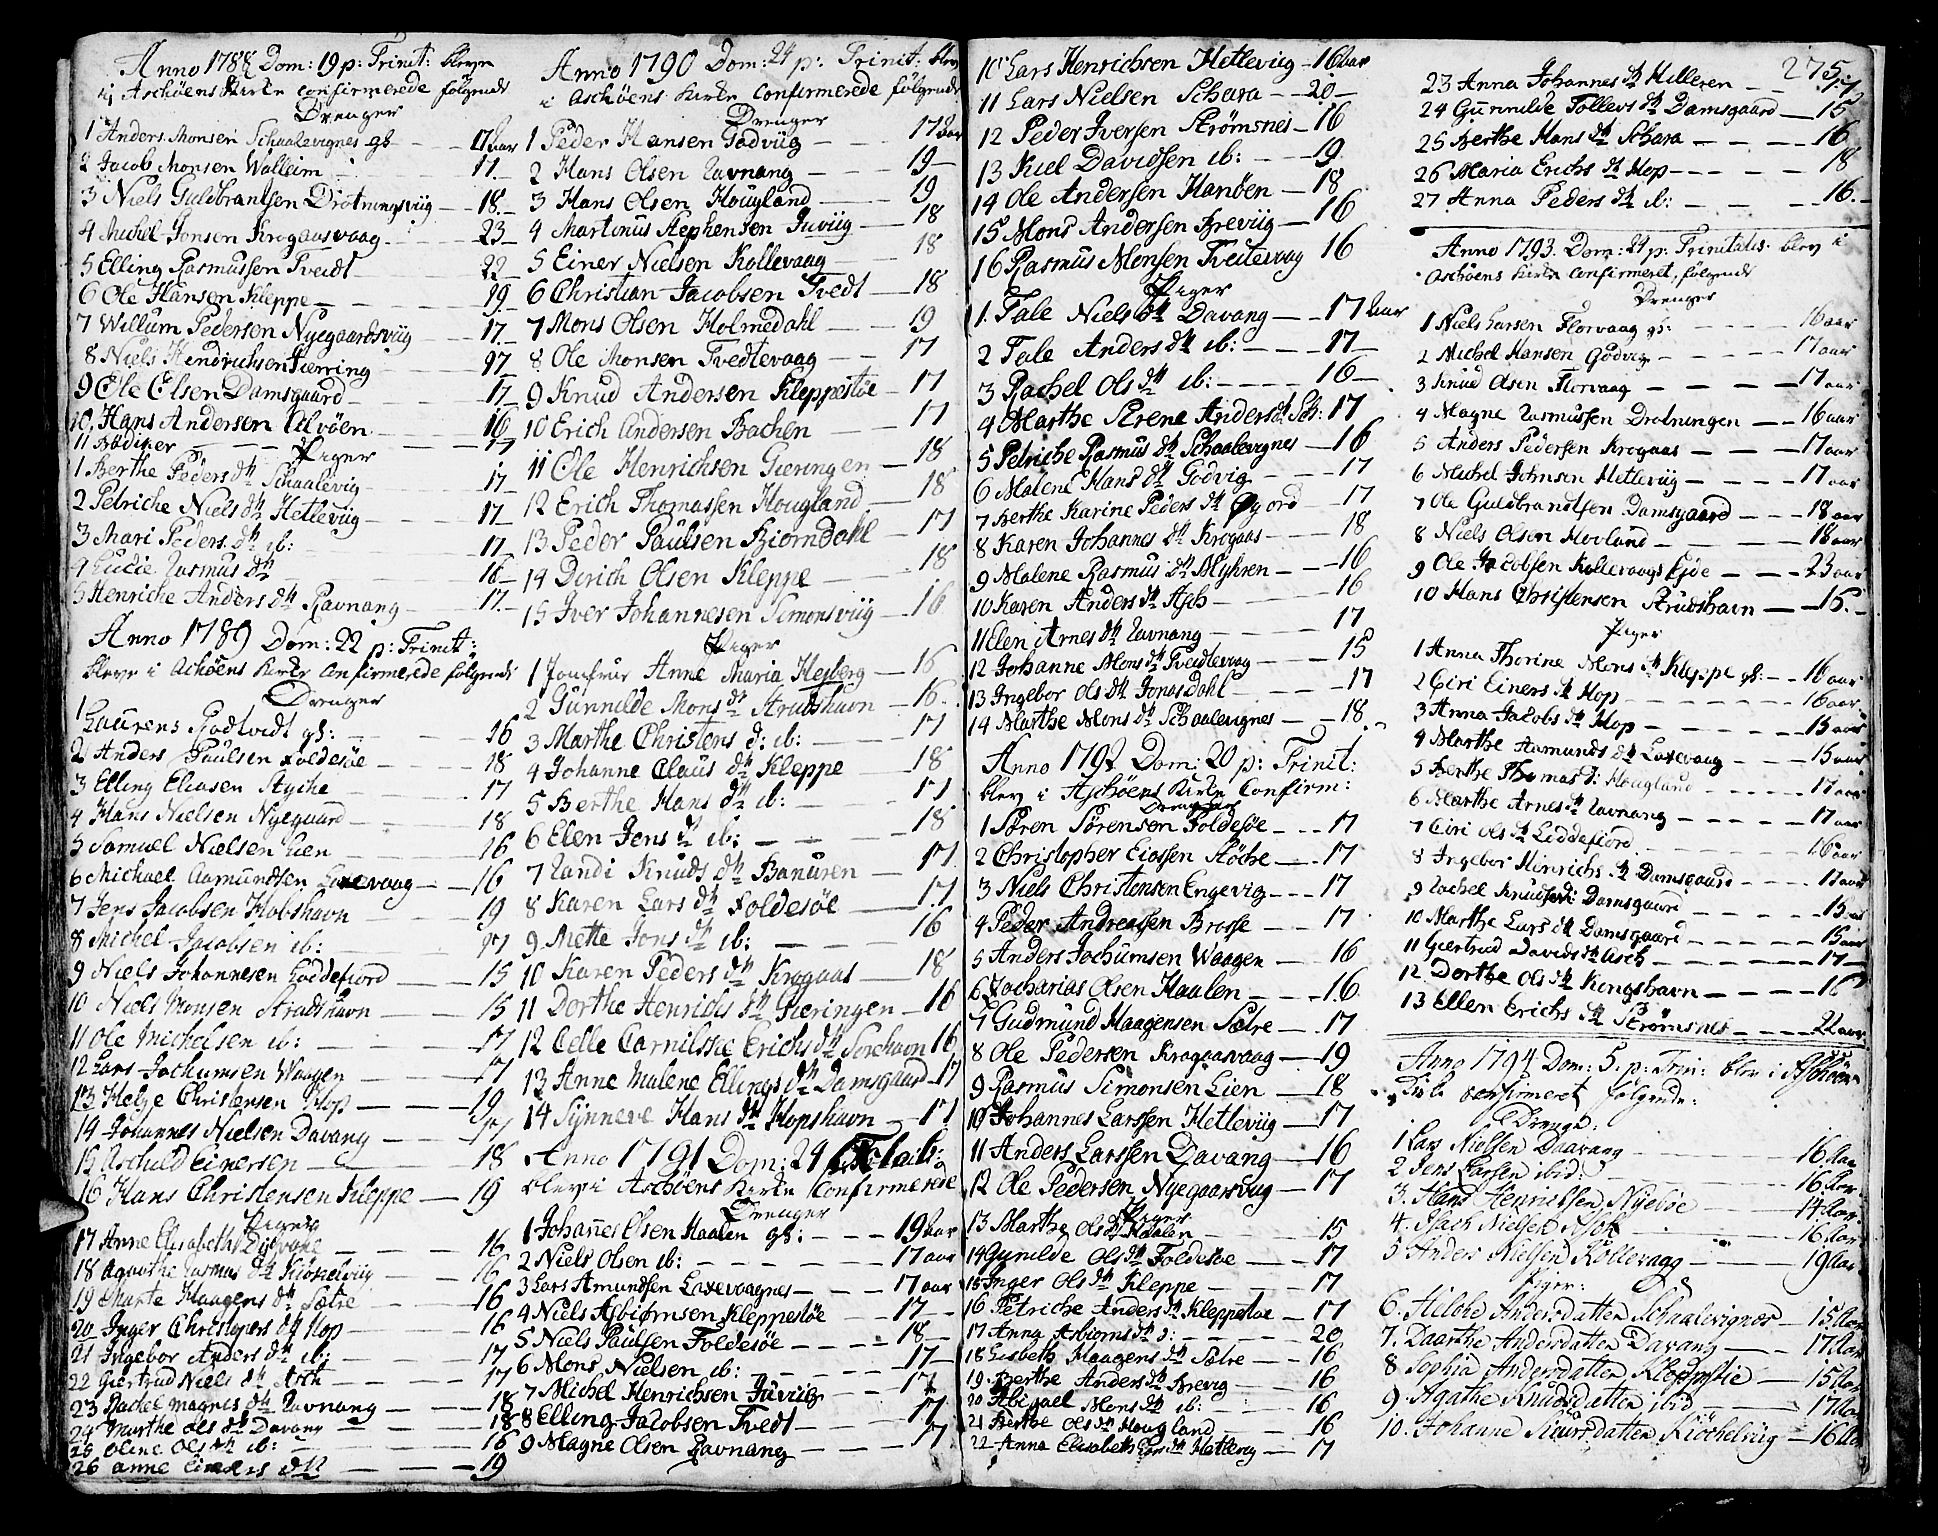 Anno 1788 Dom: 19 p: Trinit: bleve
i Aschöens Kirke confirmerede følgende
Drenger
1 Anders Monsen Schaalevignes gb - 17 aar
2 Jacob Monsen Walleim - 17
3 Niels Guldbrantsen Drotningsviig - 18
4 Michel Jonsen Krogaasvaag - 23
5 Elling Rasmussen Tveidt - 22
6 Ole Hansen Kleppe - 19
7 Willum Pedersen Nyegaardsviig - 17
8 Niels Hendrichsen Gierring - 17
9 Ole Olsen Damsgaard - 17
10 Hans Andersen Alvöen - 16
11 Bödiker - 17
Piger
1 Berthe Peders dtr Schaalevig - 17
2 Petriche Niels dtr Hetleviig - 17
3 Mari Peders dtr ib: - 17
4 Lucie Rasmus dtr - 16
5 Henriche Anders dtr Ravnang - 17
Anno 1789 Dom: 22 p: Trinit:
bleve i Aschöens Kirke Confirmerede følgende
Drenger
1 Laurens Rodtvidt gb: - 16
2 Anders Paulsen Foldesöe - 18
3 Elling Eliasen Stÿche - 17
4 Hans Nielsen Nyegaard - 18
5 Samuel Nielsen Lien - 16
6 Michael Aamundsen Laxevaag - 16
7 Jens Jacobsen Hobshavn - 19
8 Michel Jacobsen ib: - 17
9 Niels Johannesen Loddefiord - 15
10 Niels Monsen Strudshavn - 15
11 Ole Michelsen ib: - 17
12 Lars Jochumsen Waagen - 17
13 Helje Christensen Hop - 19
14 Johannes Nielsen Davang - 17
15 Aschild Einersen - 18
16 Hans Christensen Kleppe - 19
Piger
17 Anne Elisabeth - 16
18 Agathe Rasmus dtr Kiöchelviig - 16
19 Marte Haagens dtr Sætre - 16
20 Inger Christopers dtr Hop - 16
21 Ingebor Anders dtr ib: - 17
22 Giertrud Niels dtr Asch - 17
23 Rachel Magnes dtr Ravnang - 18
24 Marthe Ols dtr Davang - 18
25 Oline Ols dtr ib: - 16
26 Anne Einers dtr - 19
Anno 1790 Dom: 24 p: Trinit: blev
i Aschöens Kirke Confirmerede følgende
Drenger
1 Peder Hansen Godviig - 17 aar
2 Hans Olsen Ravnang - 19
3 Hans Olsen Hougland - 19
4 Martinus Stephensen Juviig - 18
5 Einer Nielsen Kollevaag - 18
6 Christian Jacobsen Tvedt - 18
7 Mons Olsen Holmedahl - 19
8 Ole Monsen Tvedtevaag - 17
9 Knud Andersen Kleppestöe - 17
10 Erich Andersen Bachen - 17
11 Ole Henrichsen Gieringen - 18
12 Erich Thomassen Hougland - 18
13 Peder Paulsen Biorndahl - 17
14 Dirich Olsen Kleppe - 18
15 Iver Johannesen Simonsviig - 16
Piger
1 Jomfrue Anne Maria Heiberg - 16
2 Gunnilde Mons dtr Strudshavn - 16
3 Marthe Christens d: ib: - 17
4 Johanne Claus dtr Kleppe - 18
5 Berthe Hans dtr ib: - 17
6 Elen Jens dtr ib: - 18
7 Randi Knuds dtr Banuren - 17
8 Karen Lars dtr Foldesöe - 17
9 Mette Jons dtr ib: - 16
10 Karen Peders dtr Krogaas - 18
11 Dorthe Henrichs dtr Gieringen - 16
12 Celle Carnilske Erichs dtr Sorehavn 16
13 Anne Malene Ellings dtr Damsgaard 17
14 Synneve Hans dtr Hopshavn - 17
Anno 1791 Dom: 24
blev i Aschöens Kirke Confirmerede
Drenger
1 Johannes Olsen Haalen gb: - 19 aar
2 Niels Olsen ib: - 17 aar
3 Lars Amundsen Laxevaagnes - 17 aar
4 Niels Asbiørnsen Kleppestöe - 17
5 Niels Paulsen Foldesöe - 18
6 Mons Nielsen ib: - 17
7 Michel Henrichsen Juviig - 17
8 Elling Jacobsen Tvedt - 17
9 Magne Olsen Ravnang - 17
10 Lars Henrichsen Hetleviig - 16 aar
11 Lars Nielsen Schara - 20
12 Peder Iversen Strömsnes - 16
13 Kiel Davidsen ib: - 19
14 Ole Andersen Hanöen - 18
15 Mons Andersen Breviig - 16
16 Rasmus Monsen Tveitevaag 16
Piger
1. Tale Niels dtr Davang - 17 aar
2 Tale Anders dtr ib: - 17
3 Rachel Ols dtr ib: - 16
4 Marthe Serene Anders dtr Sch: 17
5 Petriche Rasmus dtr Schaalevignes - 16
6 Malene Hans dtr Godvig - 17
7 Berthe Karine Peders dtr Øyord - 17
8 Karen Johannes dtr Krogaas - 18
9 Malene Rasmus dtr Myhren - 16
10 Karen Anders dtr Asch - 16
11 Elen Arnes dtr Ravnang - 17
12 Johanne Mons dtr Tveidtevaag - 15
13 Ingebor Ols dtr Jonasdahl - 17
14 Marthe Mons dtr Schaalevignes - 18
Anno 1792 Dom: 20 p: Trinit:
blev i Aschöens Kirke Confirm:
Drenger
1 Sören Sörensen Foldesöe - 17
2 Christopher - 17
3 Niels Christensen Engevig - 17
4 Peder Andreasen Brosse - 17
5 Anders Jochumsen Waagen - 16
6 Zacharias Olsen Haalen - 16
7 Gudmund Haagensen Sætre - 17
8 Ole Pedersen Krogaasvaag - 19
9 Rasmus Simonsen Lien - 18
10 Johannes Larssen Hetleviig - 17
11 Anders Larssen Davang - 16
12 Ole Pedersen Nyegaarsvig - 17
Piger
13 Marthe Ols dtr Haalen - 15
14 Gunilde Ols dtr Foldesöe - 17
15 Inger Ols dtr Kleppe - 17
16 Petriche Anders dtr Kleppestöe - 17
17 Anna Asbiörns dtr - 20
18 Lisbeth Haagens dtr Sætre - 16
19 Berthe Anders dtr Brevig - 16
20 Abigael Mons dtr ib: - 16
21 Berthe Ols dtr Hougland - 16
22 Anna Elisabeth Lars dtr Hetlevig - 17
275
23 Anna Johannes dtr Hilleren - 17
24 Gunnilde Tollevs dtr Damsgaard - 15
25 Berthe Hans dtr Schara - 16
26 Maria Erichs dtr Hop - 18
27 Anna Peders dtr ib: - 16
Anno 1793 Dom: 24 p: Trinitatis blev i
Aschöens Kirke Confirmeret, følgende
Drenger
1 Niels Larsen Florvaag gb: - 16 aar
2 Michel Hansen Godvig - 17 aar
3 Knud Olsen Florvaag - 17 aar
4 Magne Rasmussen Drotningen - 16 aar
5 Anders Pedersen Krogaas - 17 aar
6 Michel Johnsen Hetleviig - 17 aar
7 Ole Guldbrandtsen Damsgaard - 18 aar
8 Niels Olsen Hovland - 18 aar
9 Ole Jacobsen Kollevaags Kjöe - 23 aar
10 Hans Christensen Strudshavn - 15
Piger
1 Anna Thorine Mons dtr Kleppe gb: - 16 aar
2 Ciri Einers dtr Hop - 16 aar
3 Anna Jacobs dtr Hop - 15 aar
4 Marthe Aamunds dtr Laxevaag - 15 aar
5 Berthe Thomas d: Hougland - 17 aar
6 Marthe Arnes dtr Ravnang - 17 aar
7 Ciri Ols dtr Liddefiord - 16 aar
8 Ingebor Hinrichs dtr Damsgaard - 17 aar
9 Rachel Knuds d: Damsgaard - 15 aar
10 Marthe Lars dtr Damsgaard - 15 aar
11 Giertrud Davids dtr Asch - 17
12 Dorthe Ols dtr Kongshavn - 16
13 Ellen Erichs dtr Strömsnes - 22 aar
Anno 1794 Dom: 5. p: Trin: blev i Aschöens
Kirke confirmeret følgende:
Drenge:
1 Lars Nielsen Daavang - 16 Aar
2 Jens Larsen ibid: - 16 Aar
3. Hans Henrichsen Nÿeböe - 17 Aar
4. Isach Nielsen Asch - 16 Aar
5 Anders Nielsen Kollevaag - 19 Aar
Piger:
6. Hilche Andersdatter Schaalevignes - 15 Aar
7. Daarthe Andersdatter Davang - 17 Aar
8 Sophia Andersdatter Kleppestöe - 15 Aar
9. Agathe Knudsdatter ibid - 17 Aar
10. Johanne Siursdatter Kiöchelviig - 16 Aar